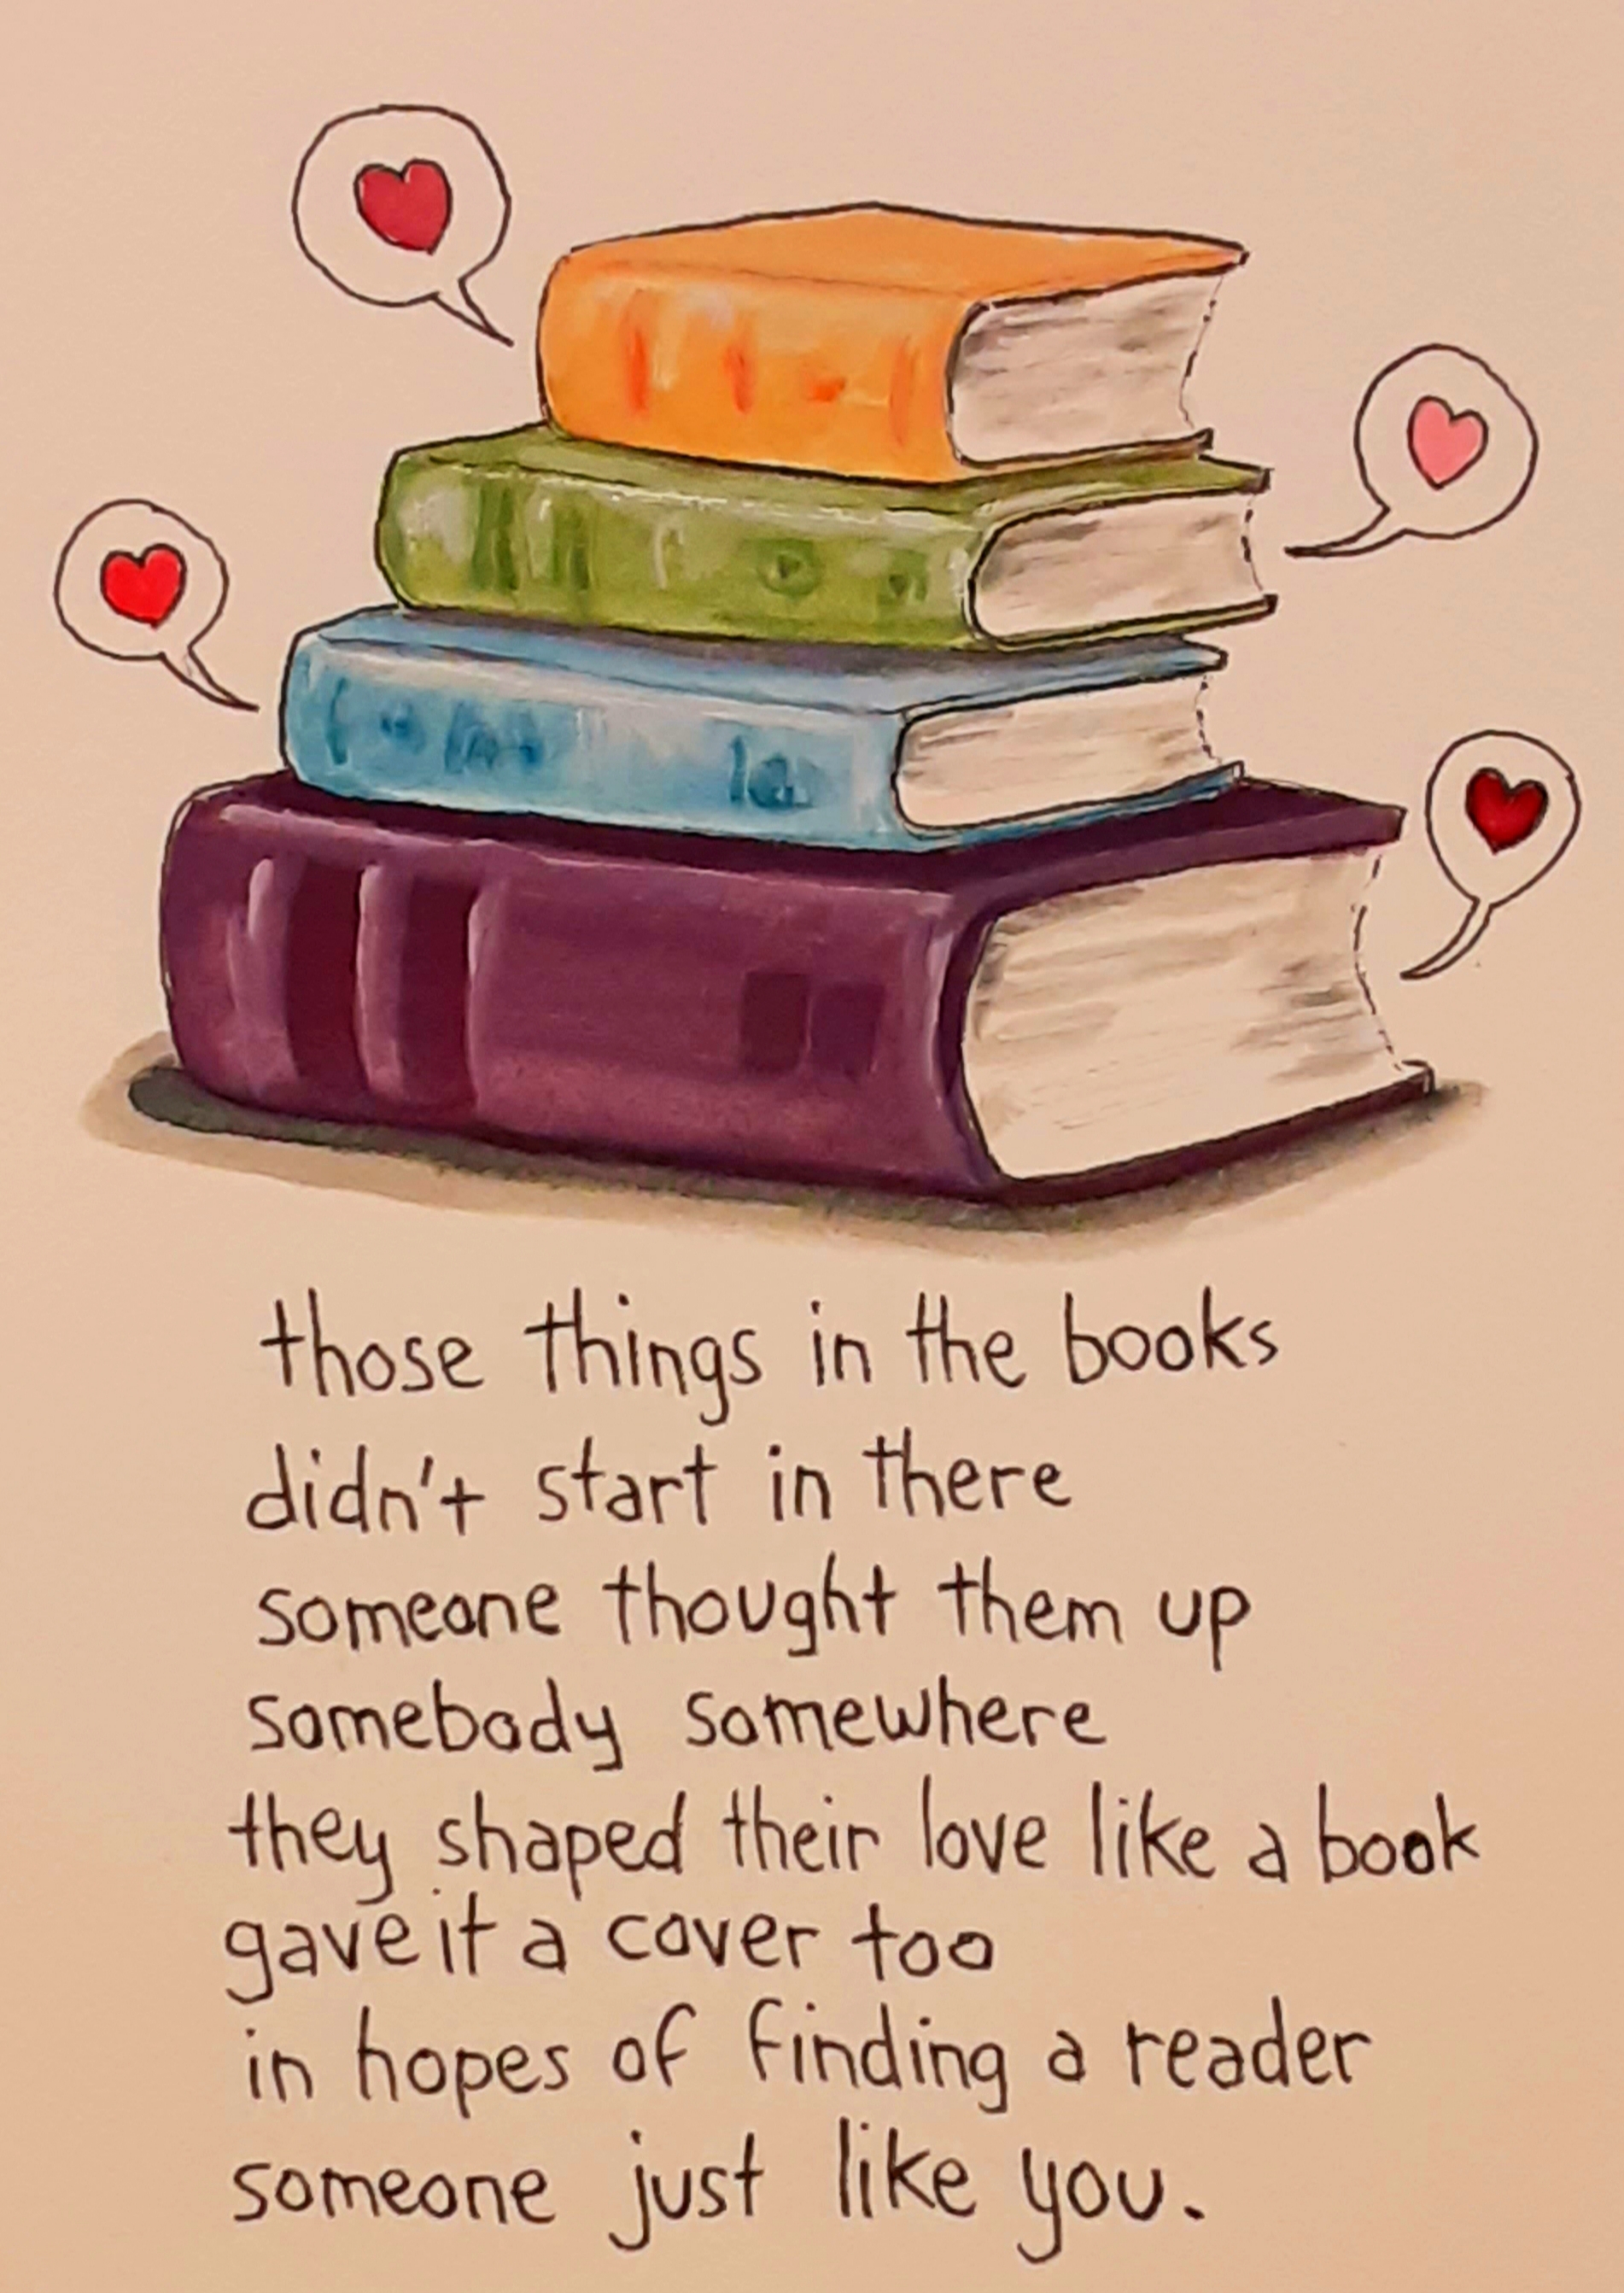 those things in the books
didn't start in there
someone thought them up
somebody somewhere
they shaped their love like a book
gave it a cover too
in hopes of finding a reader
someone just like you.